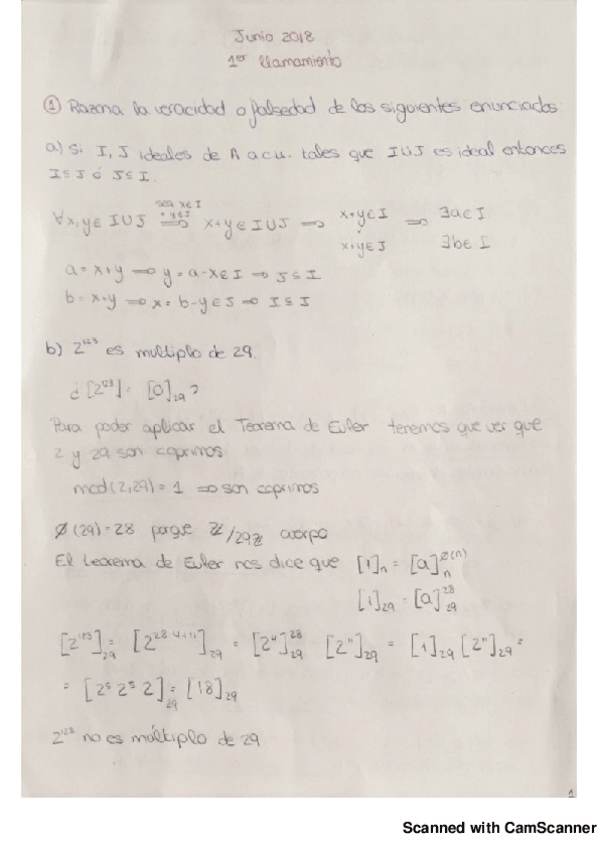 Junio 2018
1er llamamiento
① Razona la veracidad o falsedad de los siguientes enunciados
a) Si I, J ideales de A a.c.u. tales que I∪J es ideal entonces
I⊆J ó J⊆I.
∀x,y∈I∪J ⟹ (sea x∈I, y∈J) x+y∈I∪J ⟹ x+y∈I ó x+y∈J ⟹ ∃a∈I ∃b∈I
a = x+y ⟹ y = a-x∈I ⟹ J⊆I
b = x+y ⟹ x = b-y∈J ⟹ I⊆J
b) 2^123 es multiplo de 29.
¿[2^123] = [0]_29?
Para poder aplicar el Teorema de Euler tenemos que ver que
2 y 29 son coprimos
mcd(2,29) = 1 ⟹ son coprimos
Ø(29) = 28 porque ℤ/29ℤ cuerpo
El teorema de Euler nos dice que [1]_n = [a]_n^Ø(n)
[1]_29 = [a]_29^28
[2^123]_29 = [2^28·4+11]_29 = [2^4]_29^28 [2^11]_29 = [1]_29 [2^11]_29 =
= [2^5 2^5 2]_29 = [18]_29
2^123 no es múltiplo de 29
1
Scanned with CamScanner